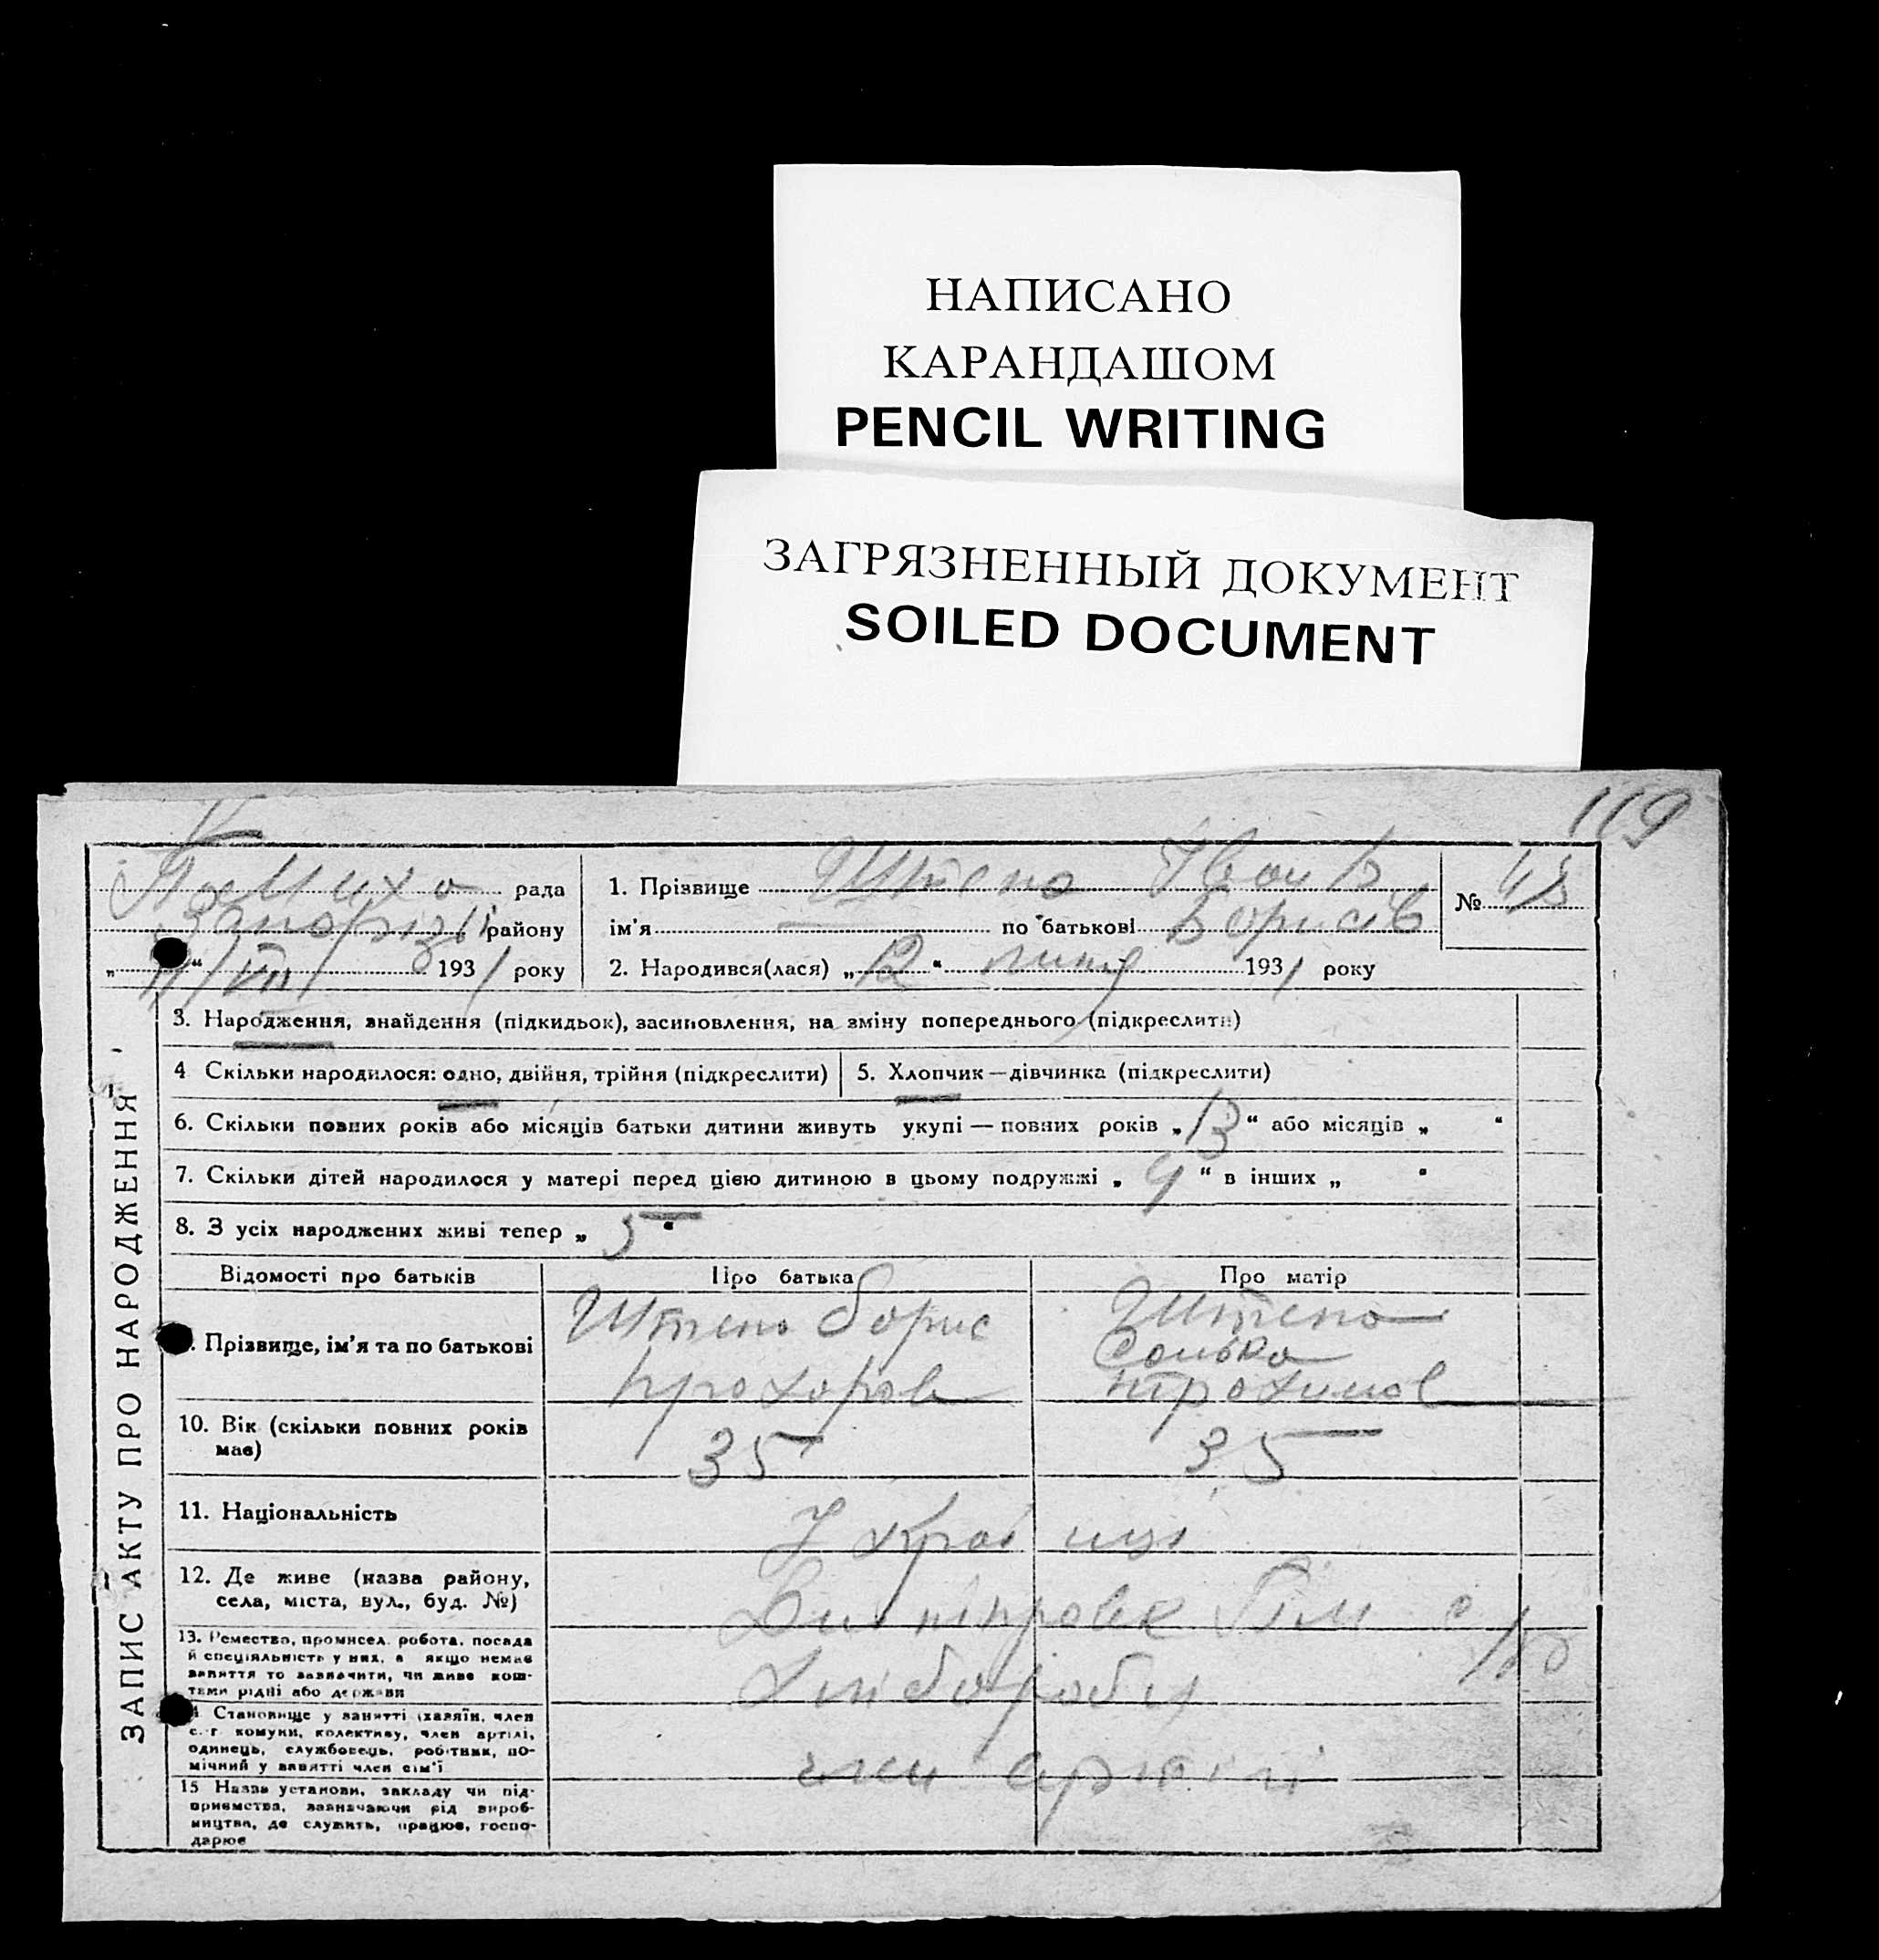 НАПИСАНО
КАРАНДАШОМ
PENCIL WRITING
ЗАГРЯЗНЕННЫЙ ДОКУМЕНТ
SOILED DOCUMENT
119
рада
району
11/VII 1931 року
1. Прізвище Штепа Іван
ім'я — по батькові Борисів
№ 48
2. Народився(лася) „12“ липня 1931 року
ЗАПИС АКТУ ПРО НАРОДЖЕННЯ
3. Народження, знайдення (підкидьок), засиновлення, на зміну попереднього (підкреслити)
4 Скільки народилося: одно, двійня, трійня (підкреслити)
5. Хлопчик—дівчинка (підкреслити)
6. Скільки повних років або місяців батьки дитини живуть укупі — повних років „13“ або місяців „ “
7. Скільки дітей народилося у матері перед цією дитиною в цьому подружжі „9“ в інших „ “
8. З усіх народжених живі тепер „5“
Відомості про батьків
Про батька
Про матір
Прізвище, ім'я та по батькові
Штепа Борис
Прохорів
Штепа
Трохимов
10. Вік (скільки повних років
має)
35
35
11. Національність
Українці
12. Де живе (назва району,
села, міста, вул., буд. №)
13. Ремество, промисел, робота, посада
й спеціяльність у них, а якщо немає
заняття то зазначити, чи живе кош-
тами рідні або держави
Хлібороби
Становище у занятті (хазяїн, член
с.-г. комуни, колективу, член артілі,
одинець, службовець, робітник, по-
мічний у занятті член сім'ї
член артілі
15 Назва установи, закладу чи під-
приємства, зазначаючи рід вироб-
ництва, де служить, працює, госпо-
дарює